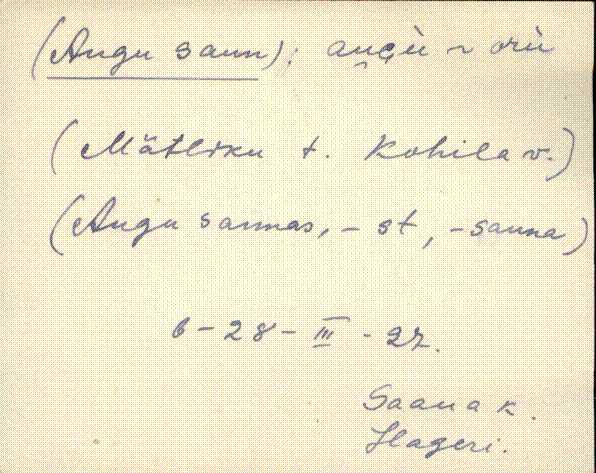 (Augu saun): 
(Mätliku t. Kohila v.)
(Augu saunas, - st, - sauna)
6-28-III-27.
Saanak.
Hageri.